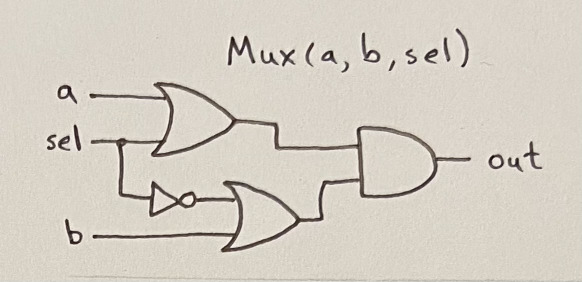 Mux(a, b, sel)
a
sel
out
b